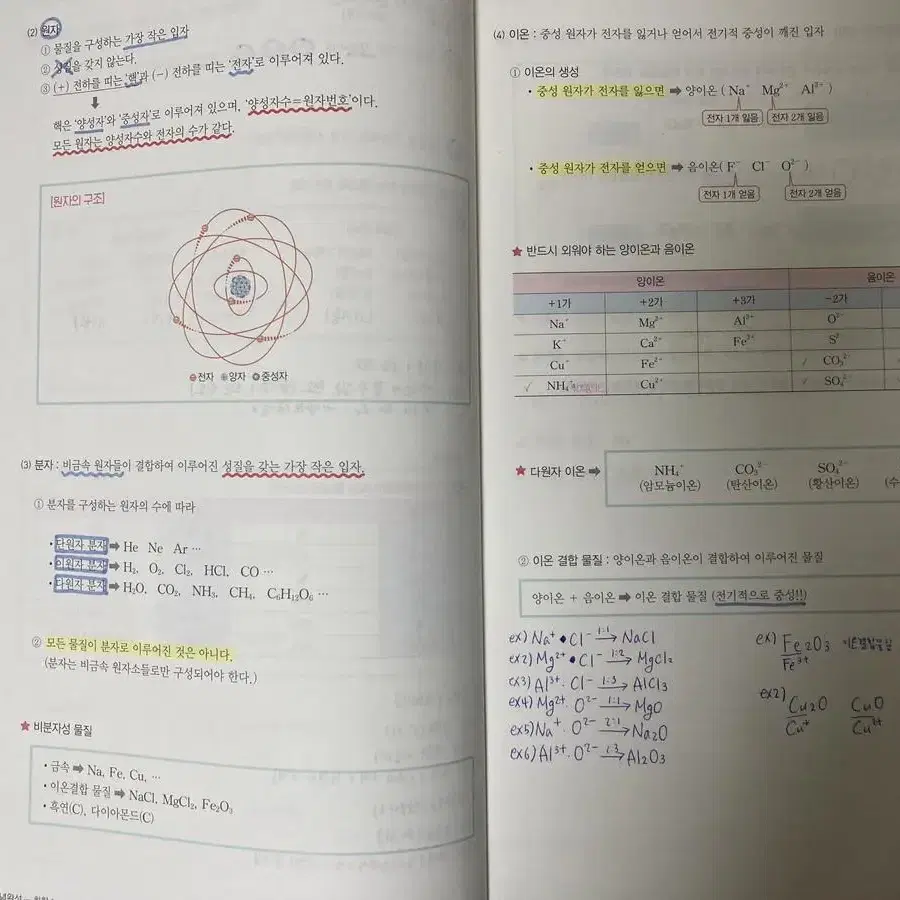 (2) 원자
① 물질을 구성하는 가장 작은 입자
② 성질을 갖지 않는다.
③ (+) 전하를 띠는 '핵'과 (-) 전하를 띠는 '전자'로 이루어져 있다.
핵은 '양성자'와 '중성자'로 이루어져 있으며, '양성자수=원자번호'이다.
모든 원자는 양성자수와 전자의 수가 같다.
[원자의 구조]
전자 양자 중성자
(3) 분자 : 비금속 원자들이 결합하여 이루어진 성질을 갖는 가장 작은 입자.
① 분자를 구성하는 원자의 수에 따라
• 단원자 분자 ➡ He Ne Ar …
• 이원자 분자 ➡ H₂, O₂, Cl₂, HCl, CO …
• 다원자 분자 ➡ H₂O, CO₂, NH₃, CH₄, C₆H₁₂O₆ …
② 모든 물질이 분자로 이루어진 것은 아니다.
(분자는 비금속 원자소들로만 구성되어야 한다.)
★ 비분자성 물질
• 금속 ➡ Na, Fe, Cu, …
• 이온결합 물질 ➡ NaCl, MgCl₂, Fe₂O₃
• 흑연(C), 다이아몬드(C)
(4) 이온 : 중성 원자가 전자를 잃거나 얻어서 전기적 중성이 깨진 입자
① 이온의 생성
• 중성 원자가 전자를 잃으면 ➡ 양이온 ( Na⁺ Mg²⁺ Al³⁺ )
전자 1개 잃음 전자 2개 잃음
• 중성 원자가 전자를 얻으면 ➡ 음이온( F⁻ Cl⁻ O²⁻ )
전자 1개 얻음 전자 2개 얻음
★ 반드시 외워야 하는 양이온과 음이온
양이온 음이온
+1가 +2가 +3가 -2가
Na⁺ Mg²⁺ Al³⁺ O²⁻
K⁺ Ca²⁺ Fe³⁺ S²⁻
Cu⁺ Fe²⁺ ✓ CO₃²⁻
✓ NH₄⁺ Cu²⁺ ✓ SO₄²⁻
★ 다원자 이온 ➡ NH₄⁺ CO₃²⁻ SO₄²⁻
(암모늄이온) (탄산이온) (황산이온) (수
② 이온 결합 물질 : 양이온과 음이온이 결합하여 이루어진 물질
양이온 + 음이온 ➡ 이온 결합 물질 (전기적으로 중성!!)
ex) Na⁺ • Cl⁻ 1:1→ NaCl
ex2) Mg²⁺ • Cl⁻ 1:2→ MgCl₂
ex3) Al³⁺ · Cl⁻ 1:3→ AlCl₃
ex4) Mg²⁺ · O²⁻ 1:1→ MgO
ex5) Na⁺ · O²⁻ 2:1→ Na₂O
ex6) Al³⁺ · O²⁻ 1:3→ Al₂O₃
ex) Fe₂O₃ 이온결합물질
Fe³⁺
ex2) Cu₂O CuO
Cu⁺ Cu²⁺